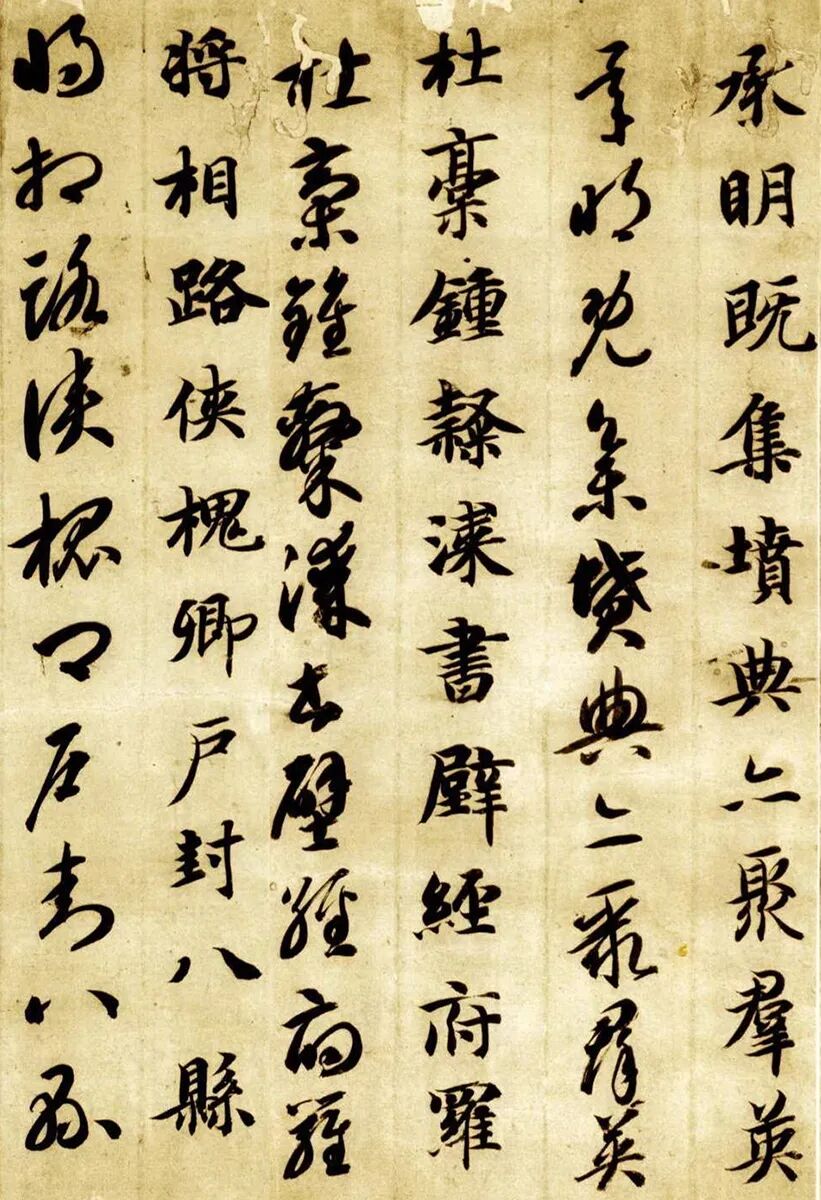 承明既集墳典亦聚羣英
承明既集墳典亦聚羣英
杜稾鍾隸漆書壁經府羅
杜稾鍾隸漆書壁經府羅
將相路俠槐卿戶封八縣
將相路俠槐卿戶封八縣